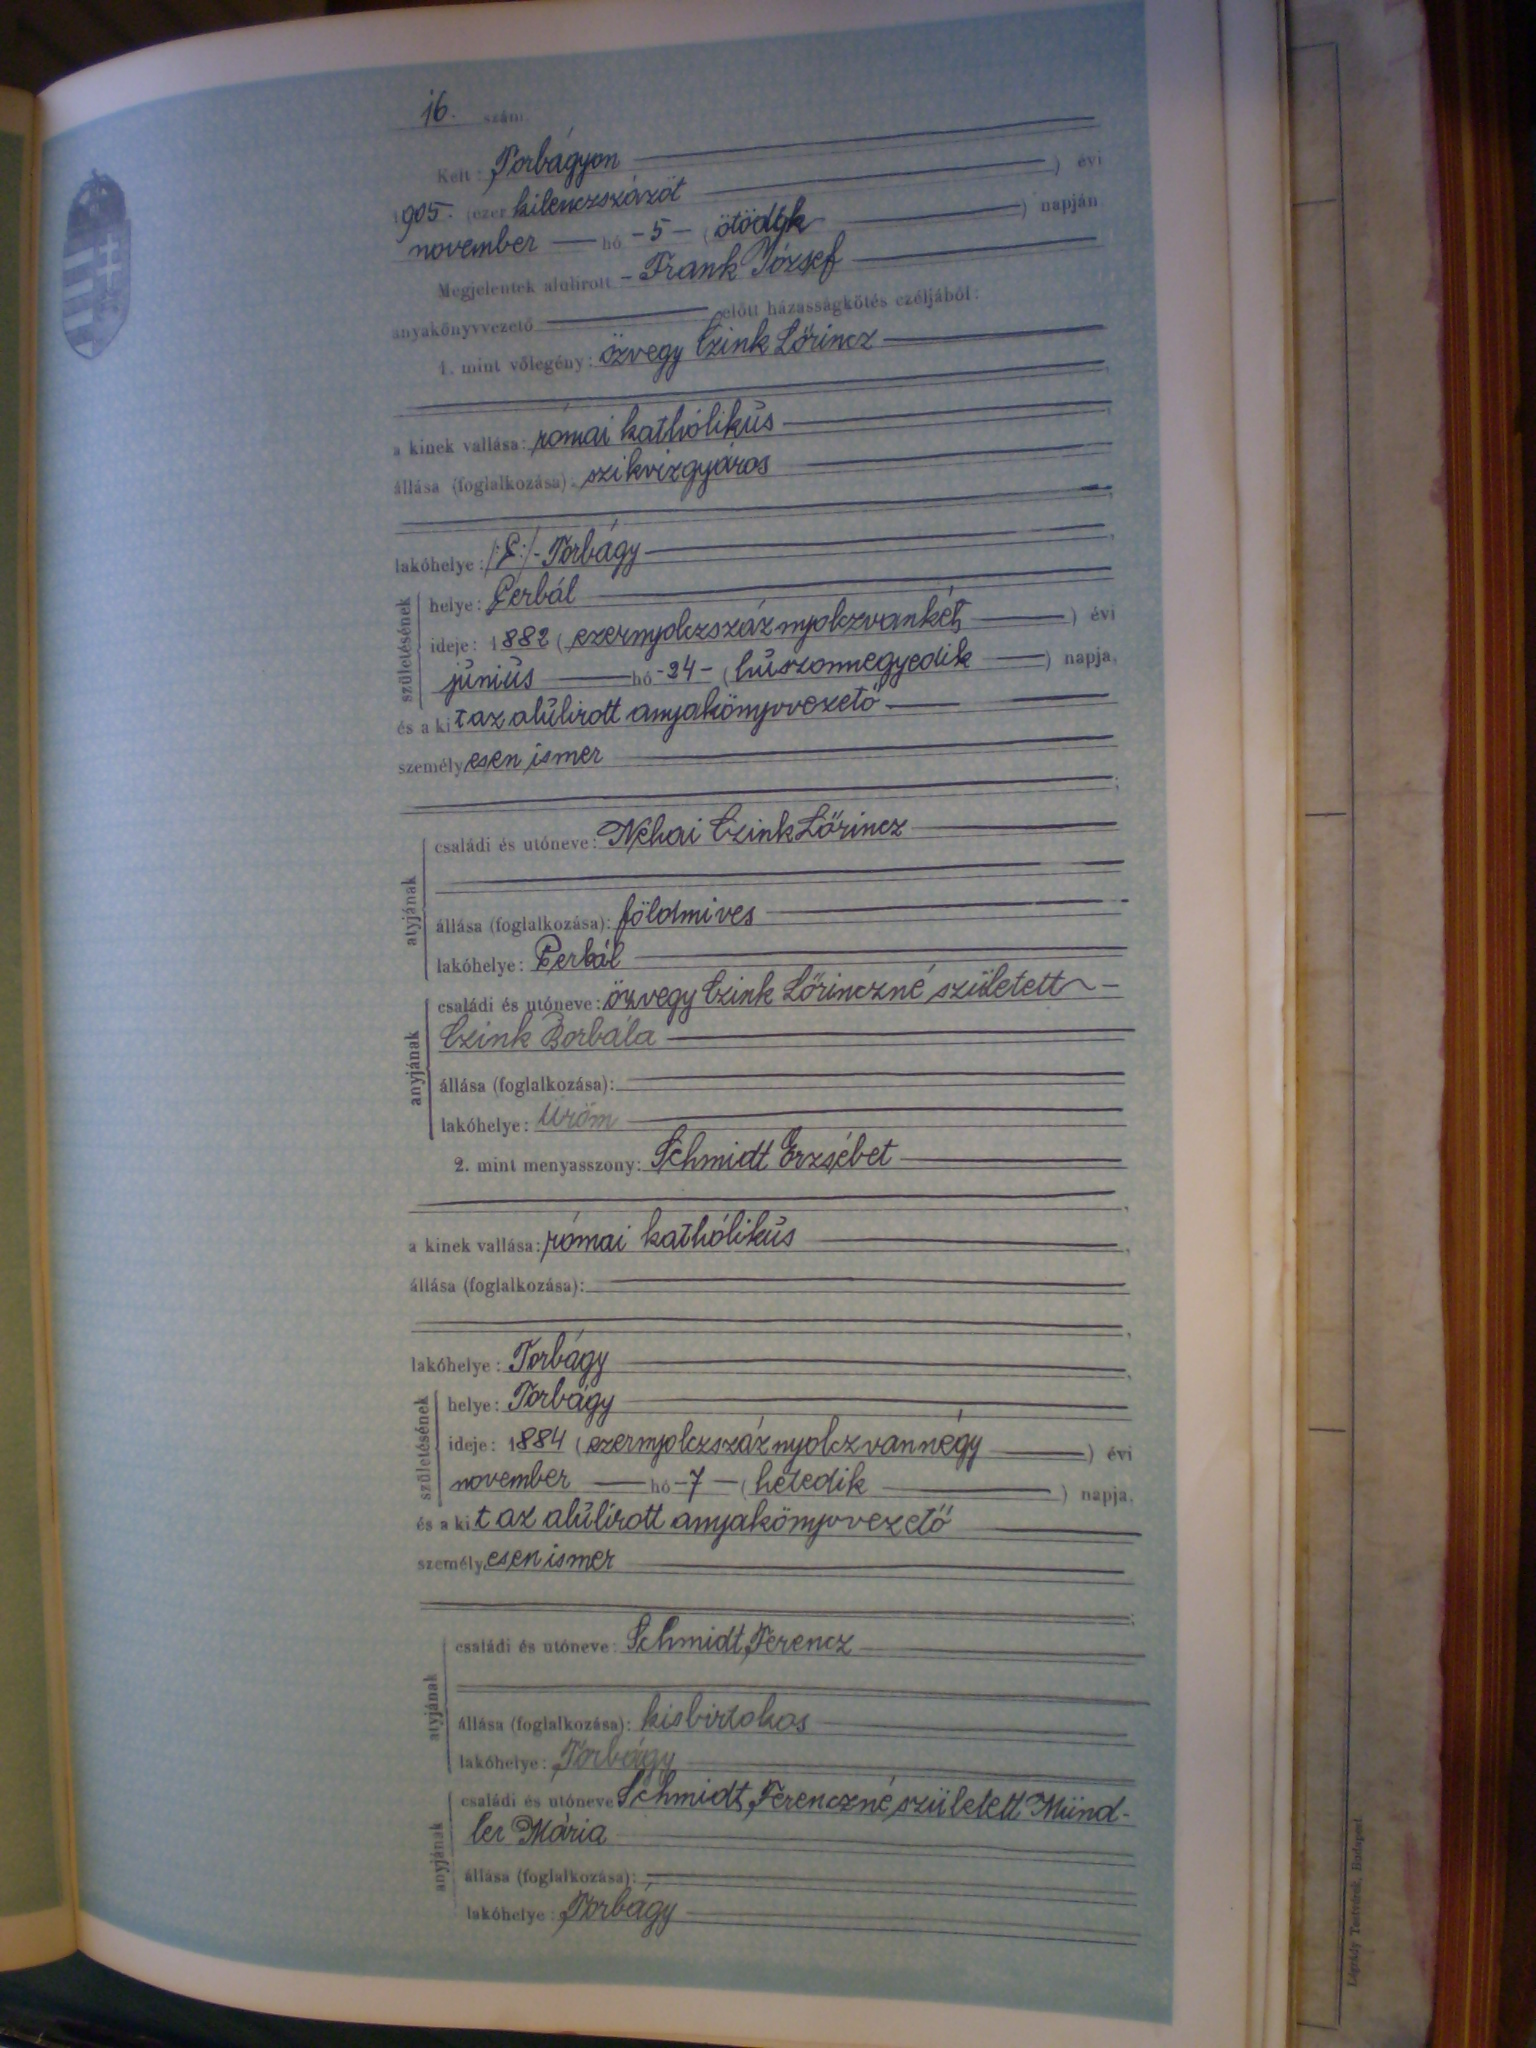 16. szám
Kelt: Torbágyon
1905. (ezer kilenczszázöt) évi
november hó -5- (ötödik) napján
Megjelentek alulírott - Frank József
anyakönyvvezető előtt házasságkötés czéljából:
1. mint vőlegény: özvegy Czink Lőrincz
a kinek vallása: római kathólikus
állása (foglalkozása): szikvizgyáros
lakóhelye: Torbágy
születésének
helye: Perbál
ideje: 1882 (ezernyolczszáznyolczvankét) évi
június hó -24- (huszonnegyedik) napja,
és a kit az alulirott anyakönyvvezető
személyesen ismer
atyjának
családi és utóneve: Néhai Czink Lőrincz
állása (foglalkozása): földmives
lakóhelye: Perbál
anyjának
családi és utóneve: özvegy Czink Lőrinczné született -
Czink Borbála
állása (foglalkozása):
lakóhelye: Üröm
2. mint menyasszony: Schmidt Erzsébet
a kinek vallása: római kathólikus
állása (foglalkozása):
lakóhelye: Torbágy
születésének
helye: Torbágy
ideje: 1884 (ezernyolczszáznyolczvannégy) évi
november hó -7- (hetedik) napja,
és a kit az alulirott anyakönyvvezető
személyesen ismer
atyjának
családi és utóneve: Schmidt Ferencz
állása (foglalkozása): kisbirtokos
lakóhelye: Torbágy
anyjának
családi és utóneve Schmidt Ferenczné született Münd-
ler Mária
állása (foglalkozása):
lakóhelye: Torbágy
Légrády Testvérek, Budapest